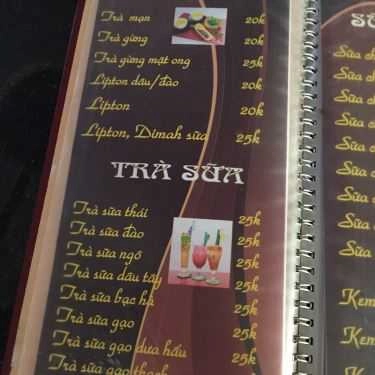 Trà mạn 20k
Trà gừng 20k
Trà gừng mật ong 25k
Lipton dâu/đào 20k
Lipton 20k
Lipton, Dimah sữa 25k
TRÀ SỮA
Trà sữa thái 25k
Trà sữa đào 25k
Trà sữa ngô 25k
Trà sữa dâu tây 25k
Trà sữa bạc hà 25k
Trà sữa gạo 25k
Trà sữa gạo dưa hấu 25k
Trà sữa gạo
Sữa
Sữa
Sữa
Sữa
Sữa
Sữa
Sữa
Sữa
Sữa
Kem
Kem
Kem